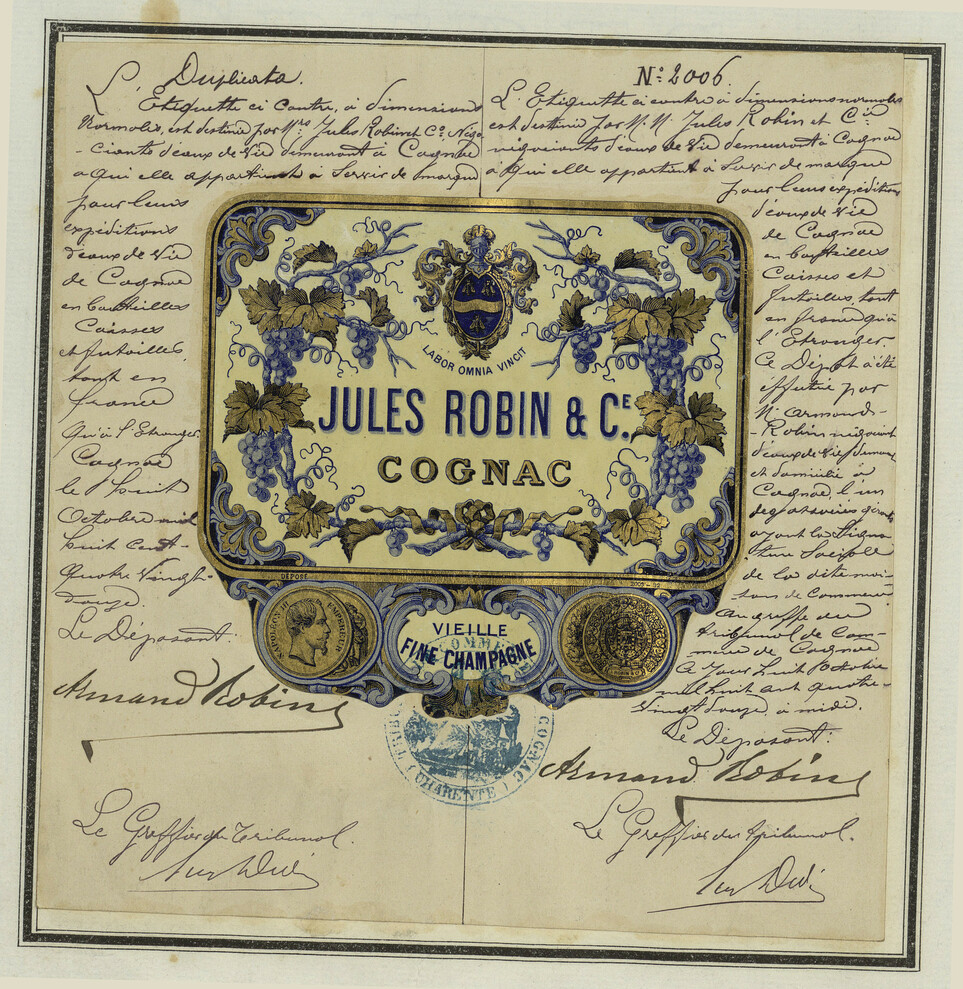 Duplicata.
L'Etiquette ci contre, à dimensions
Normales, est destinée par Mrs Jules Robin et Ce Négo
-ciants d'eaux de Vie demeurant à Cognac
à qui elle appartient à Servir de marque
pour leurs
expéditions
d'eaux de Vie
de Cognac
en bouteilles
Caisses
et futailles,
tant en
france
Qu'à l'Etranger.
Cognac
le huit
Octobre mil
huit cent-
Quatre Vingt-
douze.
Le Déposant:
Armand Robin
Le Greffier du Tribunal.
No: 2006.
L'Etiquette ci contre à dimensions normales
est destinée par M.M. Jules Robin et Cie
négociants d'eaux de Vie demeurant à Cognac
à qui elle appartient à Servir de marque
pour leurs expéditions
d'eaux de Vie
de Cognac
en bouteilles
Caisses et
futailles, tant
en france qu'à
l'Etranger.
Ce Dépôt a été
effectué par
Mr Armand-
-Robin négociant
d'eaux de Vie demeu
et domicilié à
Cognac, l'un
des associés gérants
ayant la Signa
ture Sociale
de la dite mai-
son de Commerce
au greffe du
tribunal de Com-
merce de Cognac
Ce Jour huit Octobre
mil huit cent quatre-
Vingt douze, à midi.
Le Déposant:
Armand Robin
Le Greffier du tribunal.
LABOR OMNIA VINCIT
JULES ROBIN & CE.
COGNAC
DÉPOSÉ
NAPOLEON III EMPEREUR
VIEILLE
FINE CHAMPAGNE
COGNAC
(CHARENTE)